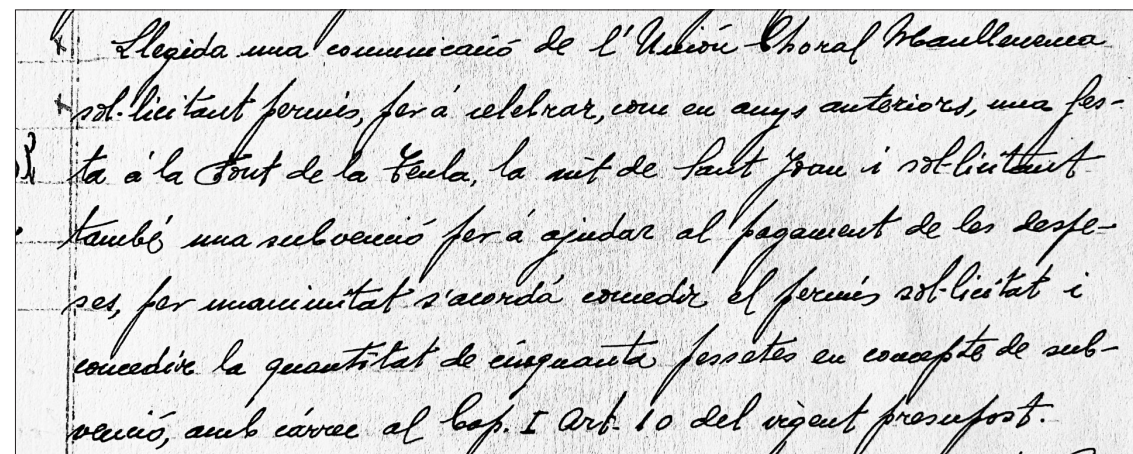 Llegida una comunicació de l'Unión Choral Manlleuenca
sol·licitant permís, per á celebrar, com en anys anteriors, una fes-
ta á la Font de la Teula, la nit de Sant Joan i sol·licitant
també una subvenció per á ajudar al pagament de les despe-
ses, per unanimitat s'acordá concedir el permís sol·licitat i
concedir la quantitat de cinquanta pessetes en concepte de sub-
venció, amb cárrec al Cap. I Art. 10 del vigent presupost.